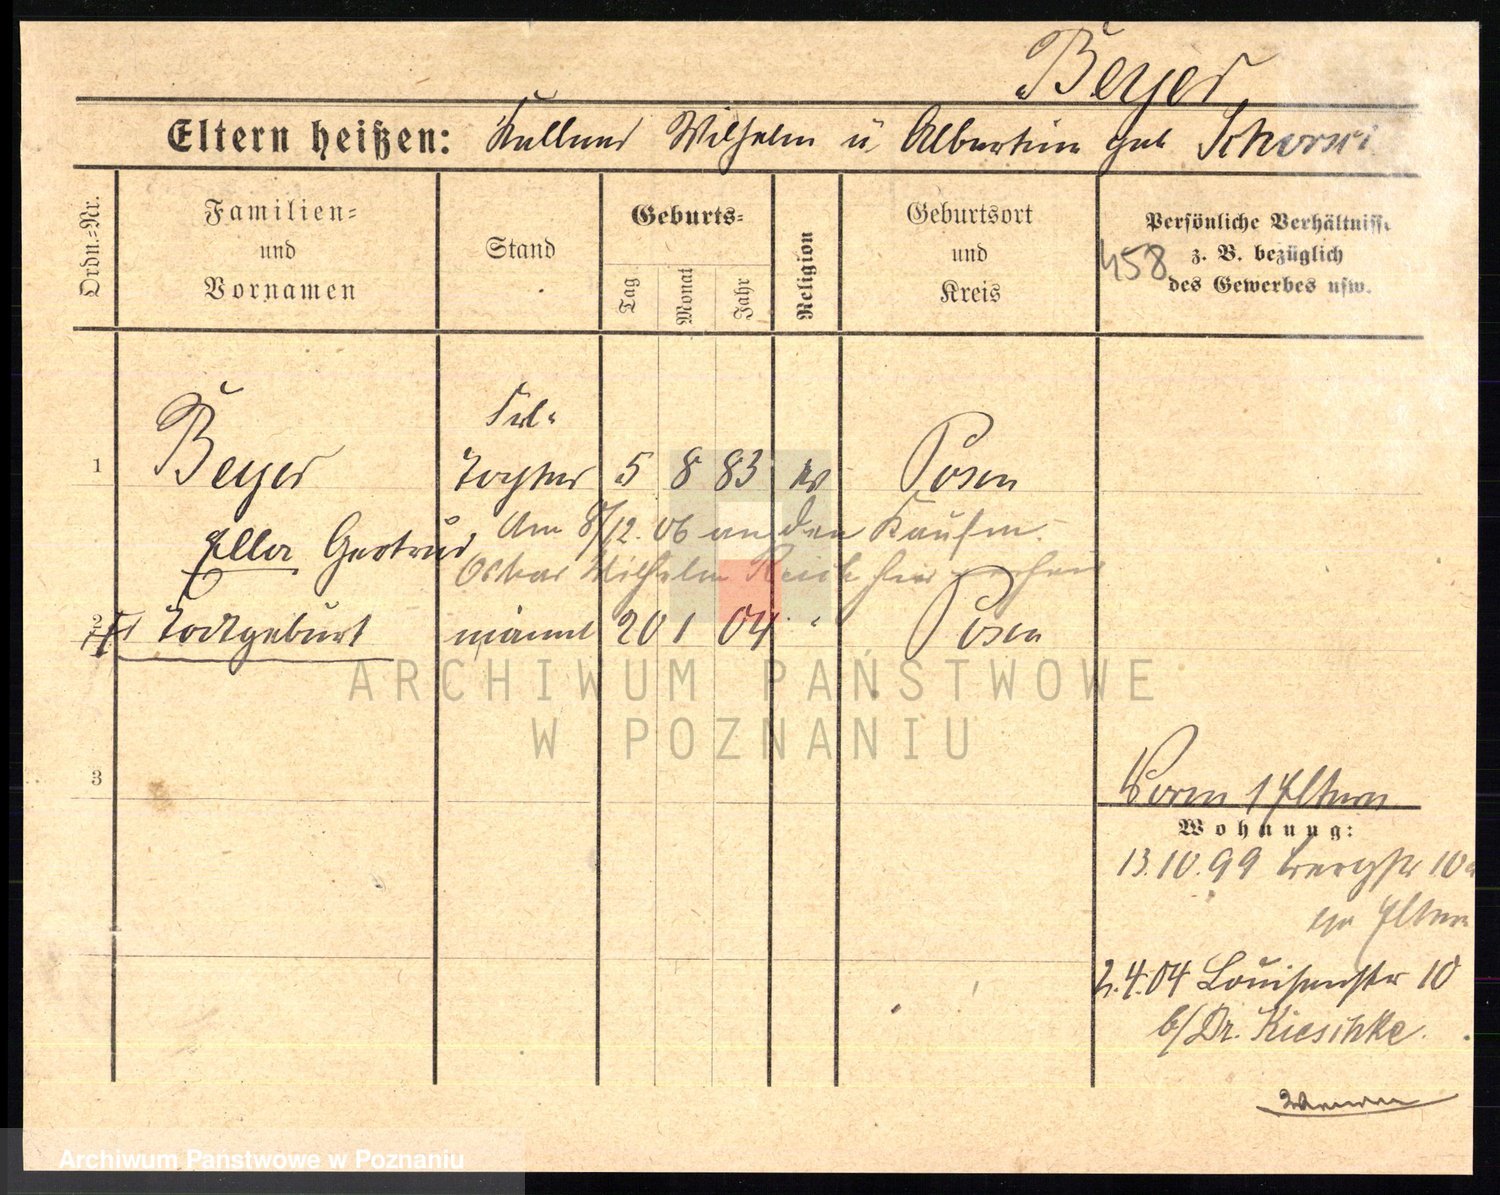 Beyer
Eltern heißen: Kellner Wilhelm u Albertine geb
Ordn.-Nr.
Familien- und Vornamen
Stand
Geburts-
Tag
Monat
Jahr
Religion
Geburtsort und Kreis
Persönliche Verhältnisse
z. B. bezüglich
458
des Gewerbes usw.
Frl.
1 Beyer Tochter 5 8 83 ev Posen
Am 8/12. 06 an den Kaufm.
Ella Gertrud
Oskar Wilhelm Reich hier verheir
2 Todtgeburt männl 20 1 04 " Posen
3
Eltern
Wohnung:
13.10.99 Bergstr 10a
Eltern
2.4.04 Louisenstr 10
b/Dr. Kieschke.
ARCHIWUM PAŃSTWOWE
W POZNANIU
Archiwum Panstwowe w Poznaniu